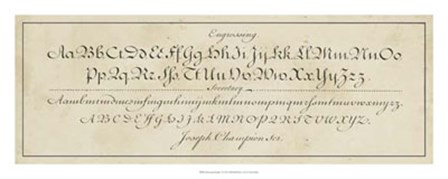 Engrossing.
Aa Bb Cc Dd Ee Ff Gg Hh Ii Jj Kk Ll Mm Nn Oo
Pp Qq Rr Sſs Tt Uu Vv Ww Xx Yy Zz
Secretary
A B C D E F G H I J K L M N O P Q R S T U V W X Y Z.
Joseph Champion Scr.